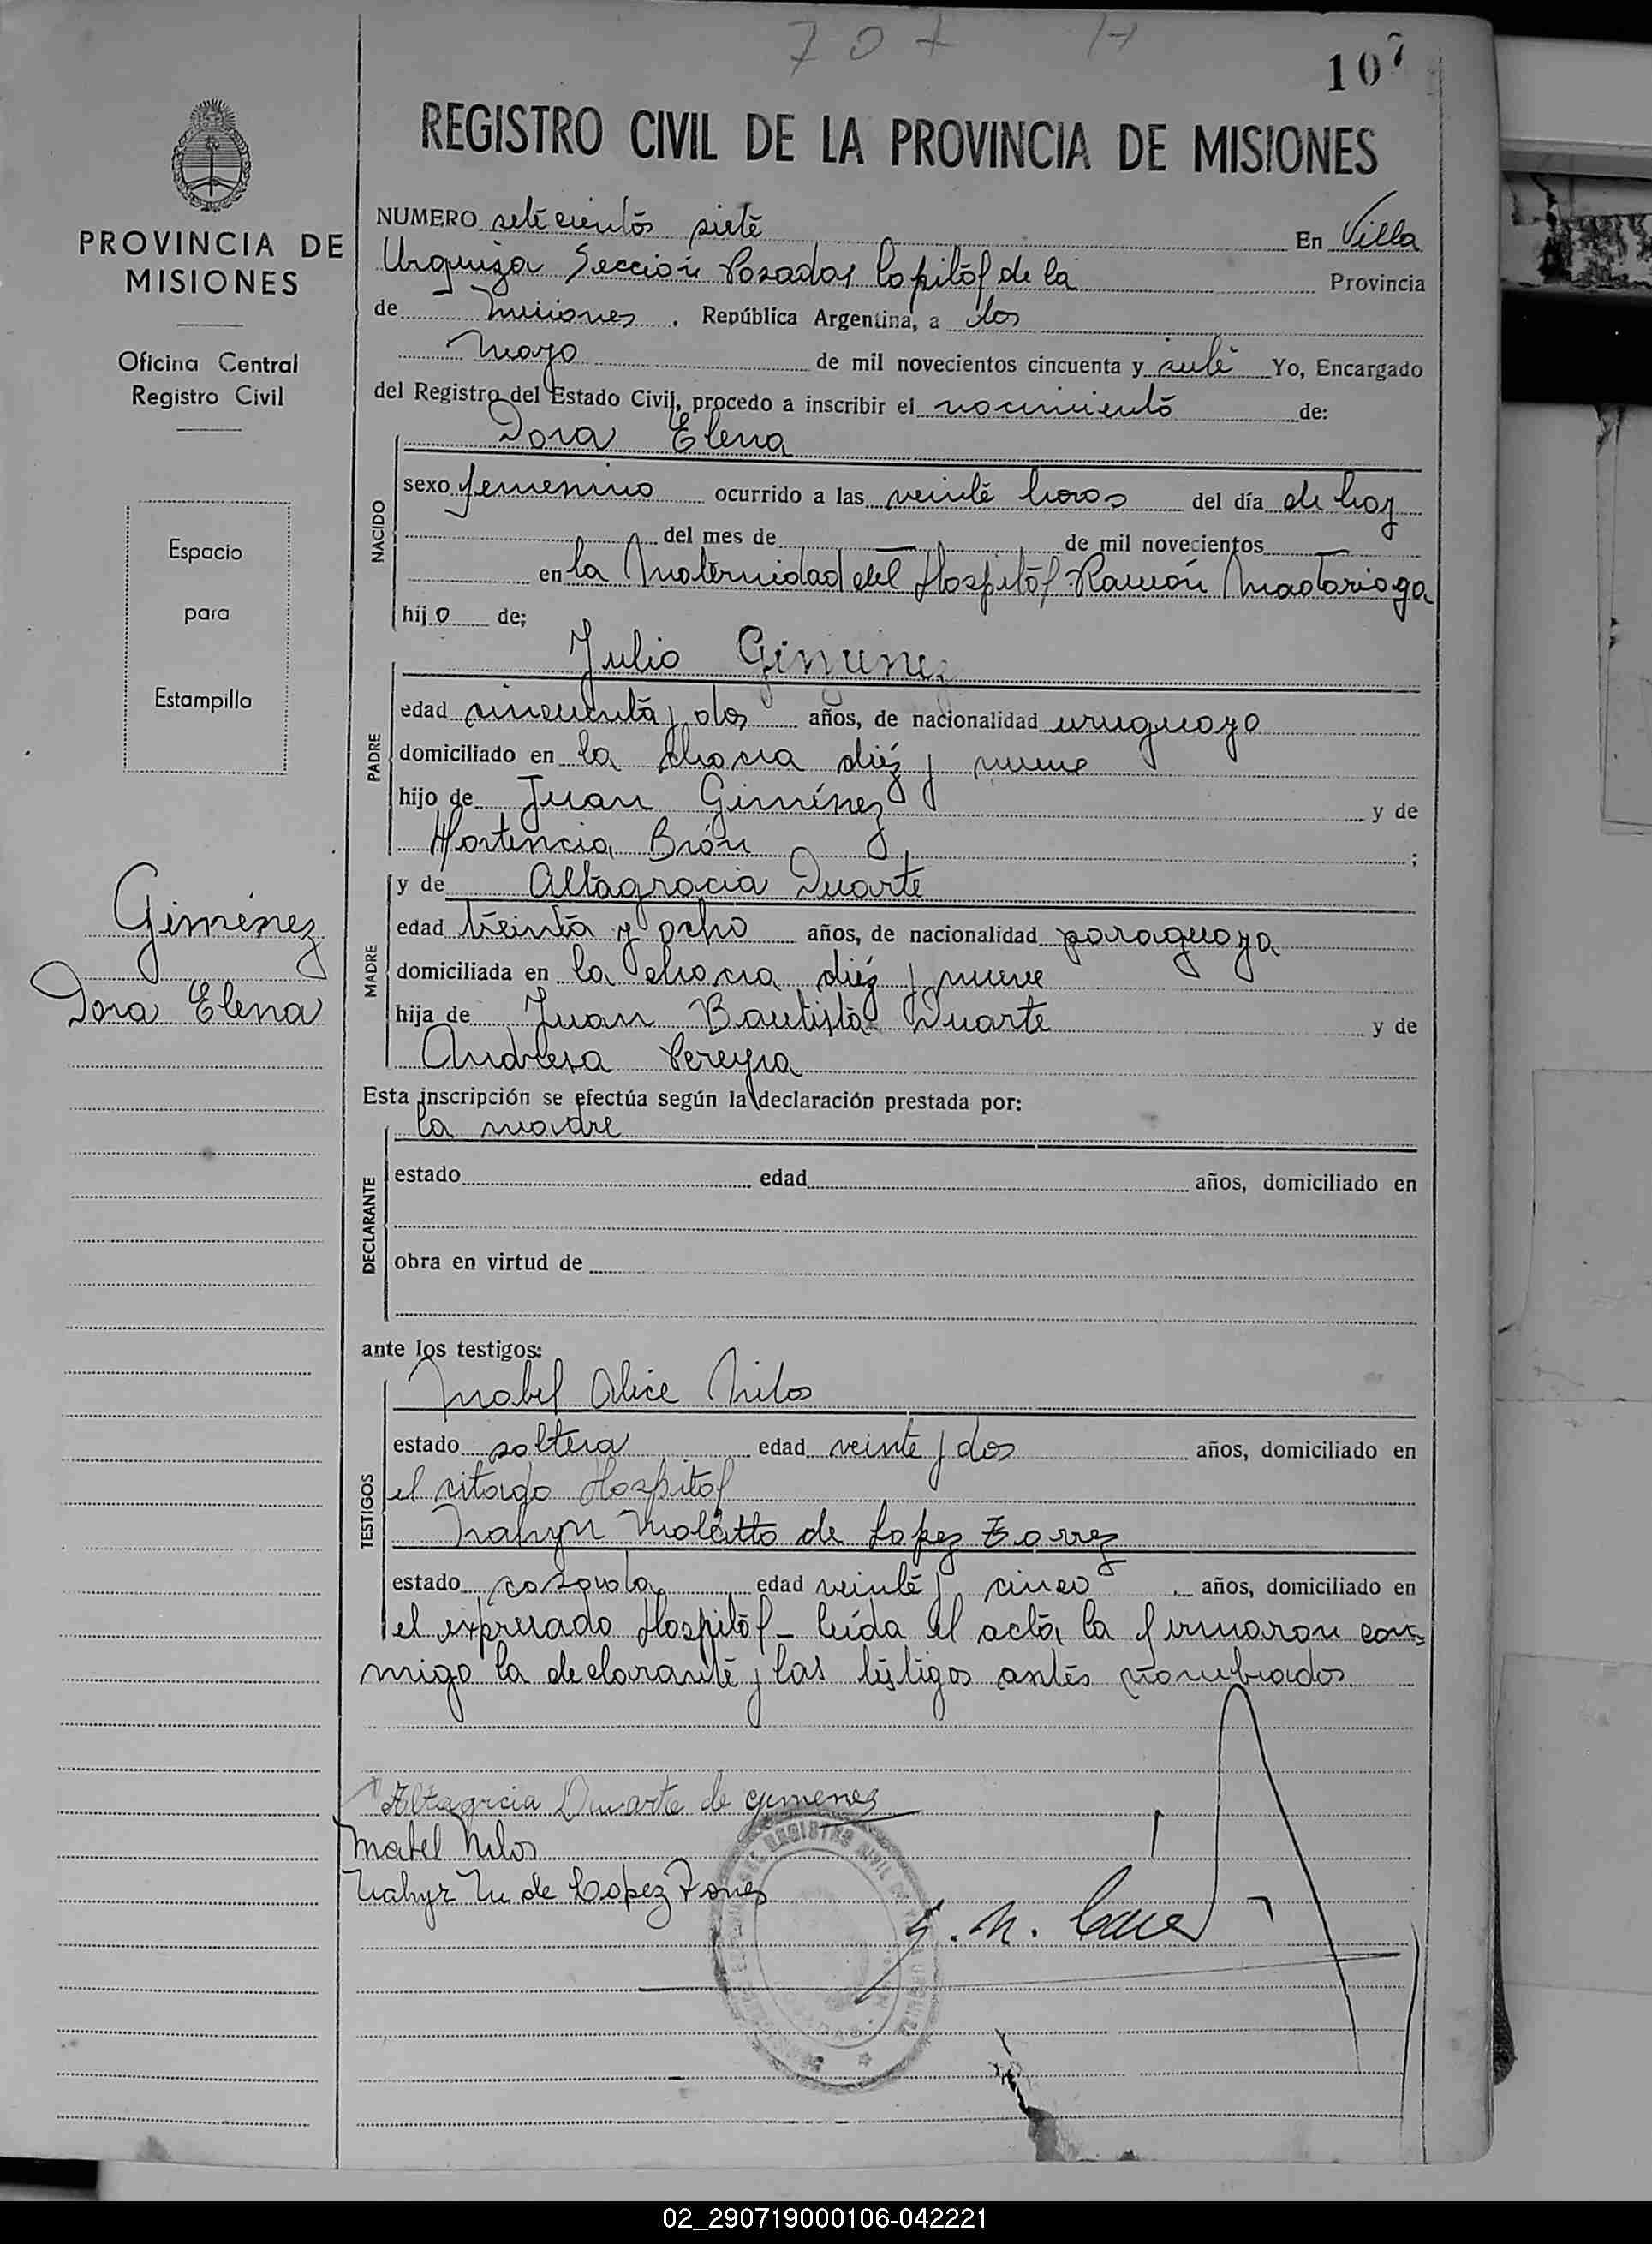 707 H
107
REGISTRO CIVIL DE LA PROVINCIA DE MISIONES
PROVINCIA DE
MISIONES
Oficina Central
Registro Civil
Espacio
para
Estampilla
Giménez
Dora Elena
NUMERO setecientos siete En Villa
Urquiza Sección Posadas Capital de la Provincia
de Misiones. República Argentina, a dos
Mayo de mil novecientos cincuenta y siete Yo, Encargado
del Registro del Estado Civil, procedo a inscribir el nacimiento de:
NACIDO
Dora Elena
sexo femenino ocurrido a las veinte horas del día de hoy
del mes de de mil novecientos
en la Maternidad del Hospital Ramón Madariaga
hijo de;
PADRE
Julio Gimenez
edad cincuenta y dos años, de nacionalidad uruguayo
domiciliado en la chacra diez y nueve
hijo de Juan Giménez y de
Hortencia Brón ;
MADRE
y de Altagracia Duarte
edad treinta y ocho años, de nacionalidad paraguaya
domiciliada en la chacra diez y nueve
hija de Juan Bautista Duarte y de
Andresa Pereyra
Esta inscripción se efectúa según la declaración prestada por:
DECLARANTE
la madre
estado edad años, domiciliado en
obra en virtud de
ante los testigos:
TESTIGOS
Mabel Alice Milos
estado soltera edad veinte y dos años, domiciliado en
el citado Hospital
de Lopez Torres
estado casada edad veinte y cinco años, domiciliado en
el expresado Hospital - leída el acta, la firmaron con=
migo la declarante y las testigos antes nombrados.
Altagricia Duarte de gimenez
Mabel Milos
de Lopez Torres
REGISTRO CIVIL
02_290719000106-042221